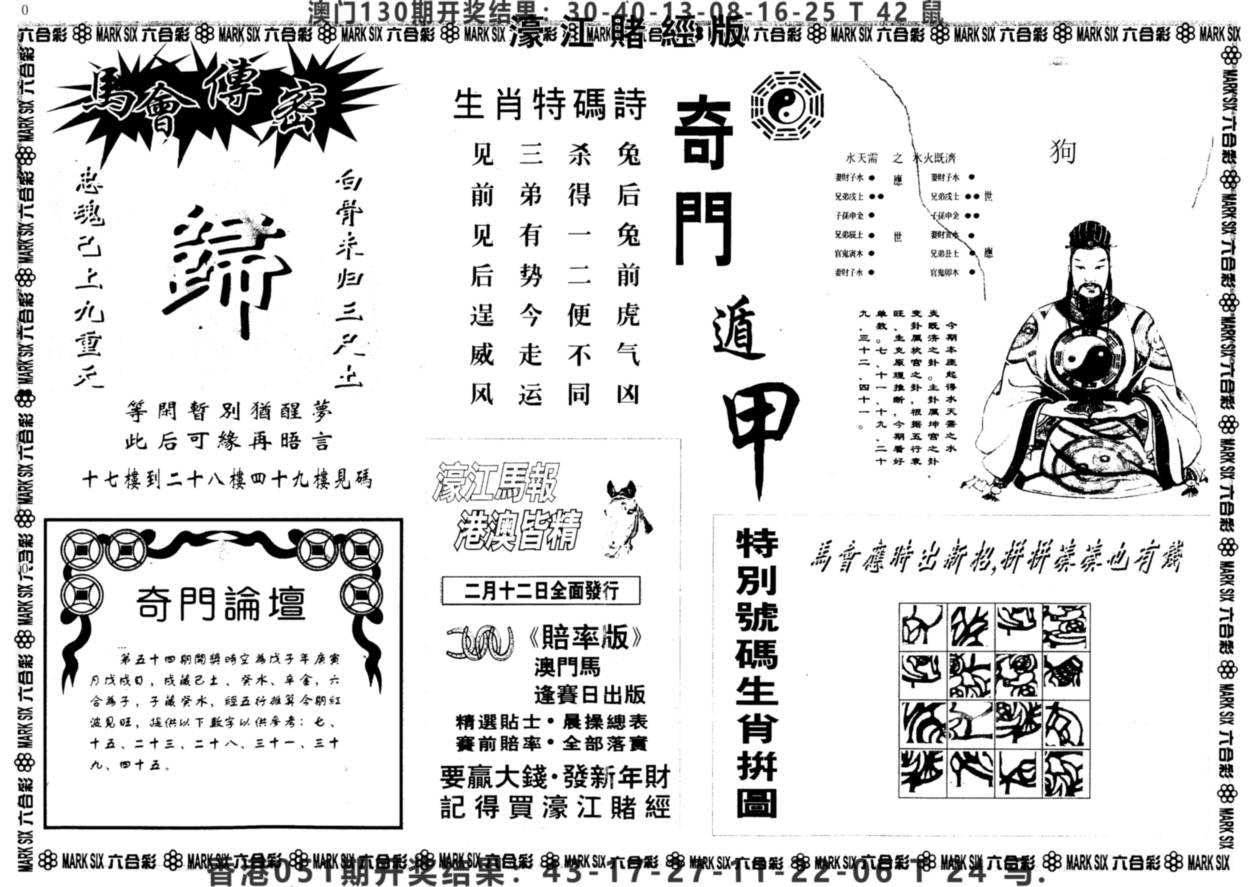 0
澳门130期开奖结果：30-40-13-08-16-25 T 42 鼠
濠江賭經版
六合彩 MARK SIX 六合彩 MARK SIX 六合彩 MARK SIX 六合彩 MARK SIX
馬會傳密
白骨未归三尺土
歸
忠魂己上九重天
等閑暫別猶醒夢
此后可緣再晤言
十七樓到二十八樓四十九樓見碼
生肖特碼詩
兔后兔前虎气凶
杀得一二便不同
三弟有势今走运
见前见后逞威风
奇門遁甲
水天需 之 水火既濟
妻財子水 應 妻財子水
兄弟戌土 兄弟戌土 世
子孫申金 子孫申金
兄弟辰土 世 妻財亥水
官鬼寅木 兄弟丑土 應
妻財子水 官鬼卯木
狗
今期本座起得水天需之水
火既济之卦。主卦属坤宫之卦，
变卦属坎宫之卦，根据五行衰
旺、生克原理推断，今期看好
单数。七、十一、十九、二十
九、三十二、四十一。
濠江馬報
港澳皆精
二月十二日全面發行
《賠率版》
澳門馬
逢賽日出版
精選貼士·晨操總表
賽前賠率·全部落實
要贏大錢·發新年財
記得買濠江賭經
奇門論壇
第五十四期開獎時空為戊子年庚寅
月戊戌日，戌藏己土、癸水、辛金，六
合為子，子藏癸水，經五行推算今期紅
波見旺，提供以下數字以供參考：七、
十五、二十三、二十八、三十一、三十
九、四十五。
特別號碼生肖拼圖
馬會應時出新招，拼拼湊湊也有錢
MARK SIX 六合彩 MARK SIX 六合彩 MARK SIX 六合彩 MARK SIX 六合彩
香港051期开奖结果：43-17-27-11-22-06 T 24 马.